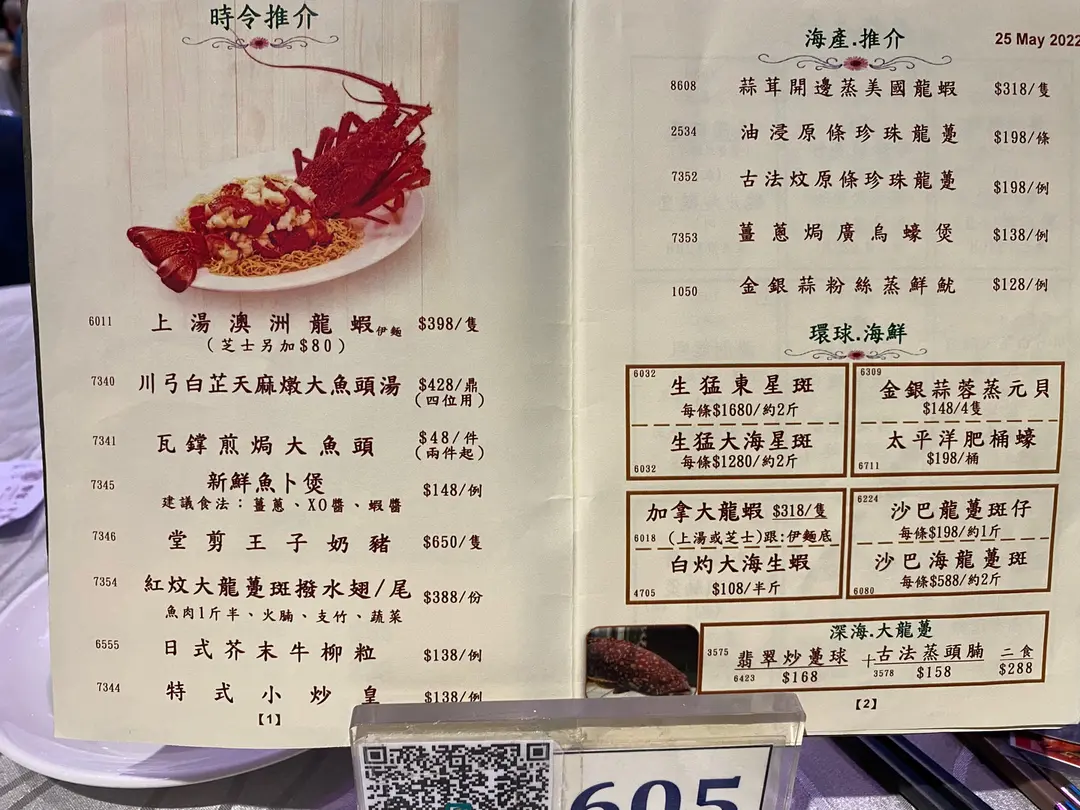 時令推介
6011 上湯澳洲龍蝦伊麵 $398/隻
(芝士另加$80)
7340 川弓白芷天麻燉大魚頭湯 $428/鼎
(四位用)
7341 瓦鐣煎焗大魚頭 $48/件
(兩件起)
7345 新鮮魚卜煲 $148/例
建議食法：薑蔥、XO醬、蝦醬
7346 堂剪王子奶豬 $650/隻
7354 紅炆大龍躉斑撥水翅/尾 $388/份
魚肉1斤半、火腩、支竹、蔬菜
6555 日式芥末牛柳粒 $138/例
7344 特式小炒皇 $138/例
【1】
海產.推介
25 May 2022
8608 蒜茸開邊蒸美國龍蝦 $318/隻
2534 油浸原條珍珠龍躉 $198/條
7352 古法炆原條珍珠龍躉 $198/例
7353 薑蔥焗廣島蠔煲 $138/例
1050 金銀蒜粉絲蒸鮮魷 $128/例
環球.海鮮
6032 生猛東星斑
每條$1680/約2斤
生猛大海星斑
6032 每條$1280/約2斤
6309 金銀蒜蓉蒸元貝
$148/4隻
太平洋肥桶蠔
6711 $198/桶
加拿大龍蝦 $318/隻
6018 (上湯或芝士)跟:伊麵底
白灼大海生蝦
4705 $108/半斤
6224 沙巴龍躉斑仔
每條$198/約1斤
沙巴海龍躉斑
6080 每條$588/約2斤
深海.大龍躉
3575 翡翠炒躉球 + 古法蒸頭腩 二食
6423 $168 3578 $158 $288
【2】
605